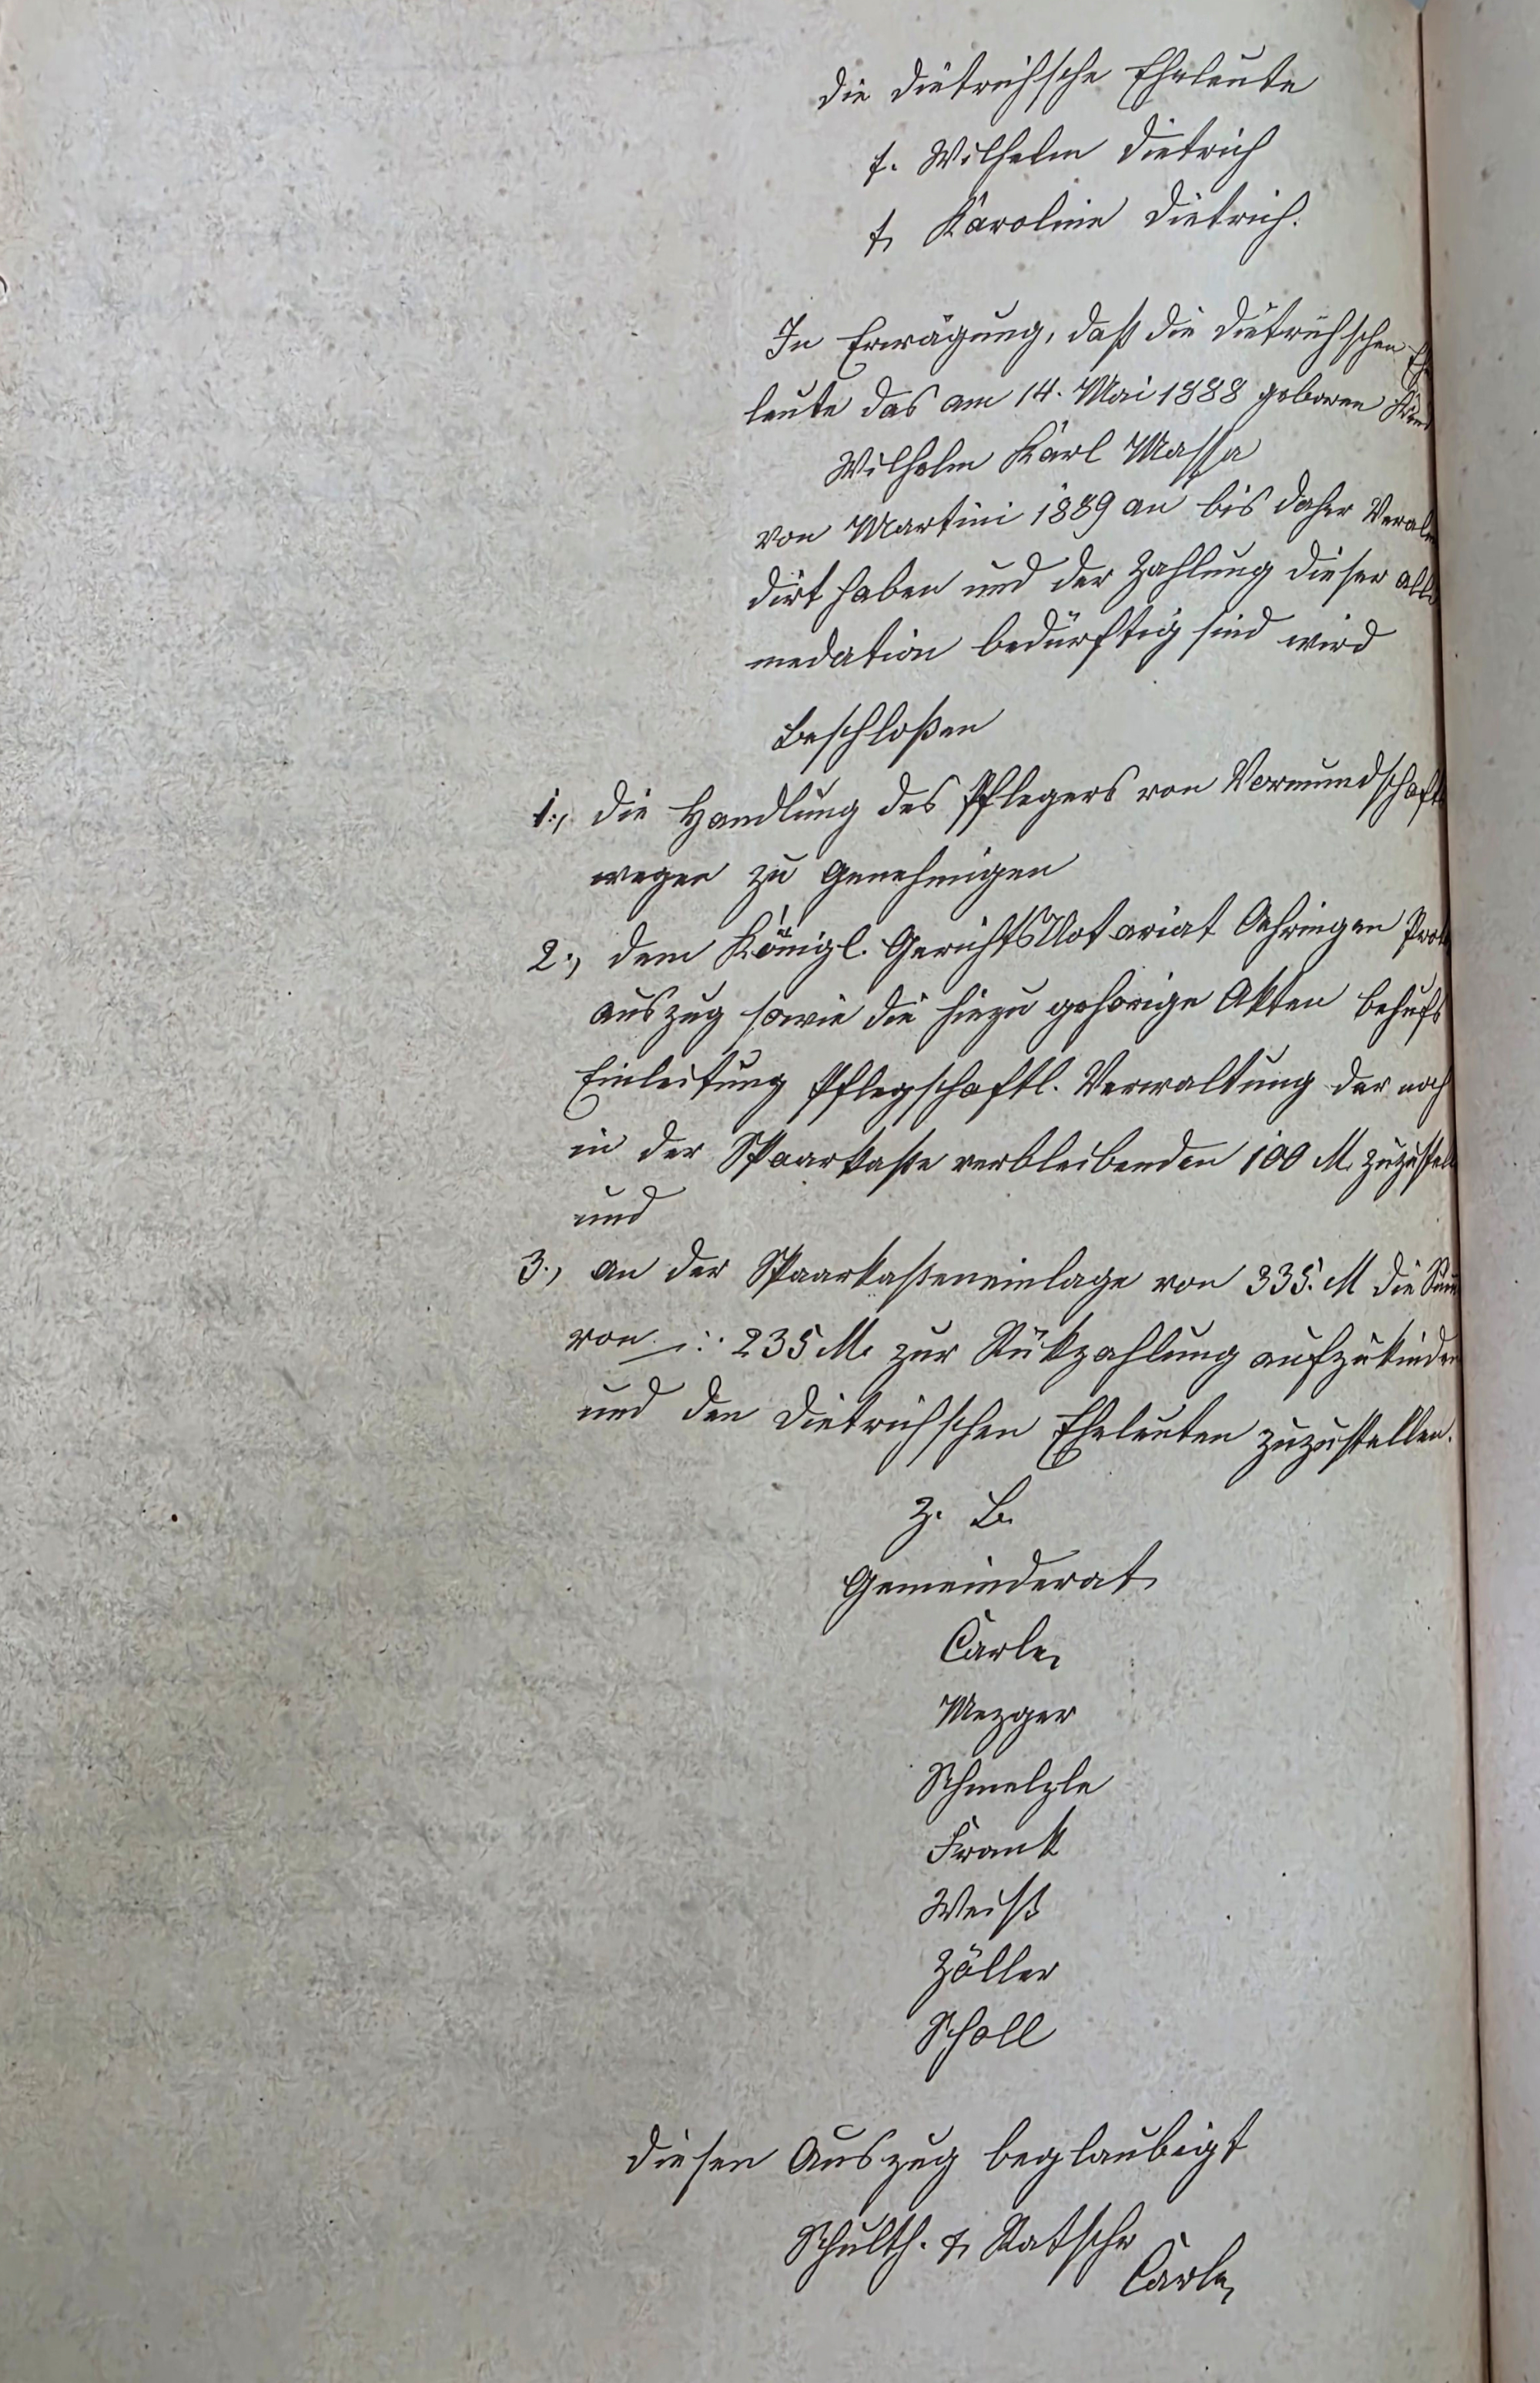 Die Dietrich'sche Eheleute
t. Wilhelm Dietrich
t. Karoline Dietrich.
In Erwägung, daß die Dietrich'schen Ehe
leute das am 14. Mai 1888 geborene Kind
Wilhelm Karl Massa
von Martini 1889 an bis daher
dirt haben und der Zahlung dieser
medation bedürftig sind wird
Beschloßen
1., die Handlung des Pflegers von Vormundschafts
wegen zu Genehmigen
2., dem Königl. GerichtsNotariat Oehringen Prot
auszug sowie die hiezu gehorige Akten behufs
Einleitung Pflegschaftl. Verwaltung der noch
in der Spaarkaße verbleibenden 100 M. zuzustell
und
3., an der Spaarkaßeneinlage von 335. M die Sum
von 235 M. zur Rükzahlung aufzukünden
und den Dietrich'schen Eheleuten zuzustellen.
Z. B.
Gemeinderat
Carle,
Mezger
Schmelzle
Frank
Weiß
Zöller
Scholl
Diesen Auszug beglaubigt
Schulth. & Ratschr
Carle,